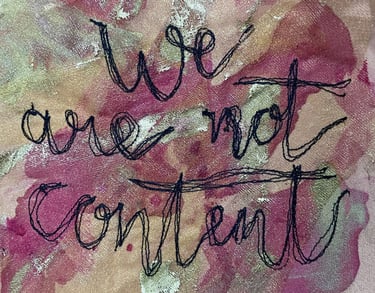 We
are not
content